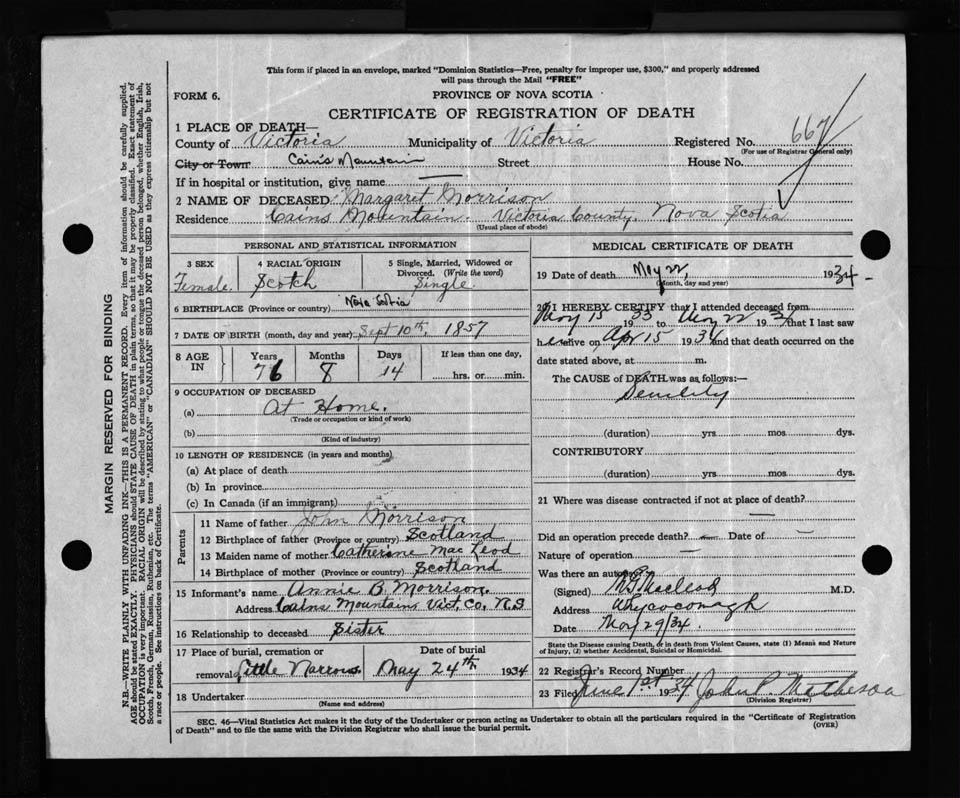 This form if placed in an envelope, marked "Dominion Statistics—Free, penalty for improper use, $300," and properly addressed
will pass through the Mail "FREE"
FORM 6.
PROVINCE OF NOVA SCOTIA
CERTIFICATE OF REGISTRATION OF DEATH
1 PLACE OF DEATH—
County of Victoria Municipality of Victoria Registered No. 667
(For use of Registrar General only)
City or Town Cains Mountain Street House No.
If in hospital or institution, give name —
2 NAME OF DECEASED Margaret Morrison
Residence Cains Mountain. Victoria County, Nova Scotia
(Usual place of abode)
PERSONAL AND STATISTICAL INFORMATION
3 SEX
Female
4 RACIAL ORIGIN
Scotch
5 Single, Married, Widowed or
Divorced. (Write the word)
Single
6 BIRTHPLACE (Province or country) Nova Scotia
7 DATE OF BIRTH (month, day and year) Sept 10th, 1857
8 AGE
IN
Years
76
Months
8
Days
14
If less than one day,
hrs. or min.
9 OCCUPATION OF DECEASED
(a) At Home.
(Trade or occupation or kind of work)
(b)
(Kind of industry)
10 LENGTH OF RESIDENCE (in years and months)
(a) At place of death
(b) In province
(c) In Canada (if an immigrant)
Parents
11 Name of father John Morrison
12 Birthplace of father (Province or country) Scotland
13 Maiden name of mother Catherine MacLeod
14 Birthplace of mother (Province or country) Scotland
15 Informant's name Annie B. Morrison.
Address Cains Mountains Vict. Co, N.S
16 Relationship to deceased Sister
17 Place of burial, cremation or
removal Little Narrows
Date of burial
May 24th, 1934
18 Undertaker
(Name and address)
MEDICAL CERTIFICATE OF DEATH
19 Date of death May 22, 1934-
(Month, day and year)
20 I HEREBY CERTIFY that I attended deceased from
May 15 1933 to May 22 1934 that I last saw
her alive on Apr 15 1934 and that death occurred on the
date stated above, at m.
The CAUSE of DEATH was as follows:—
Senility
(duration) yrs mos dys.
CONTRIBUTORY
(duration) yrs mos dys.
21 Where was disease contracted if not at place of death?
—
Did an operation precede death? — Date of —
Nature of operation —
Was there an autopsy?
(Signed) MacLeod M.D.
Address Whycocomagh
Date May 29/34.
State the Disease causing Death, or in death from Violent Causes, state (1) Means and Nature
of Injury, (2) whether Accidental, Suicidal or Homicidal.
22 Registrar's Record Number
23 Filed June 1st 1934 John P. Matheson
(Division Registrar)
SEC. 46—Vital Statistics Act makes it the duty of the Undertaker or person acting as Undertaker to obtain all the particulars required in the "Certificate of Registration
of Death" and to file the same with the Division Registrar who shall issue the burial permit.
(OVER)
MARGIN RESERVED FOR BINDING
N.B.—WRITE PLAINLY WITH UNFADING INK—THIS IS A PERMANENT RECORD. Every item of information should be carefully supplied.
AGE should be stated EXACTLY. PHYSICIANS should STATE CAUSE OF DEATH in plain terms, so that it may be properly classified. Exact statement of
OCCUPATION is very important. RACIAL ORIGIN will be described by stating to what people or tongue the deceased person belonged, whether English, Irish,
Scotch, French, German, Russian, Ruthenian, etc. The terms "AMERICAN" or "CANADIAN" SHOULD NOT BE USED as they express citizenship but not
a race or people. See instructions on back of Certificate.